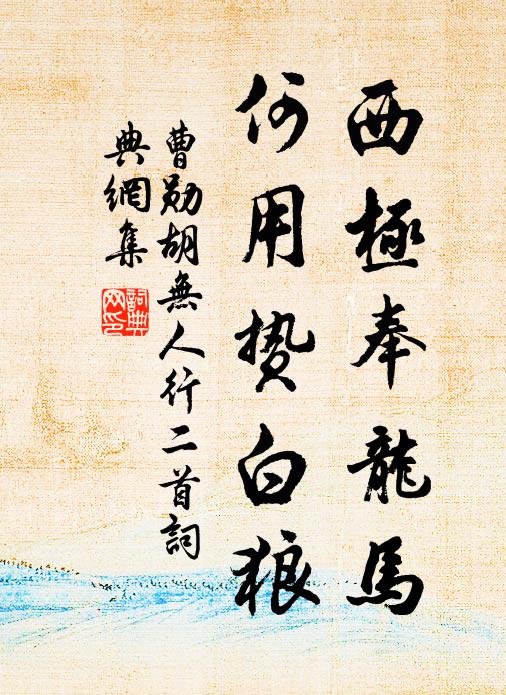 西極奉龍馬
何用贄白狼
曹勛胡無人行二首詞
典網集
詞典
网印